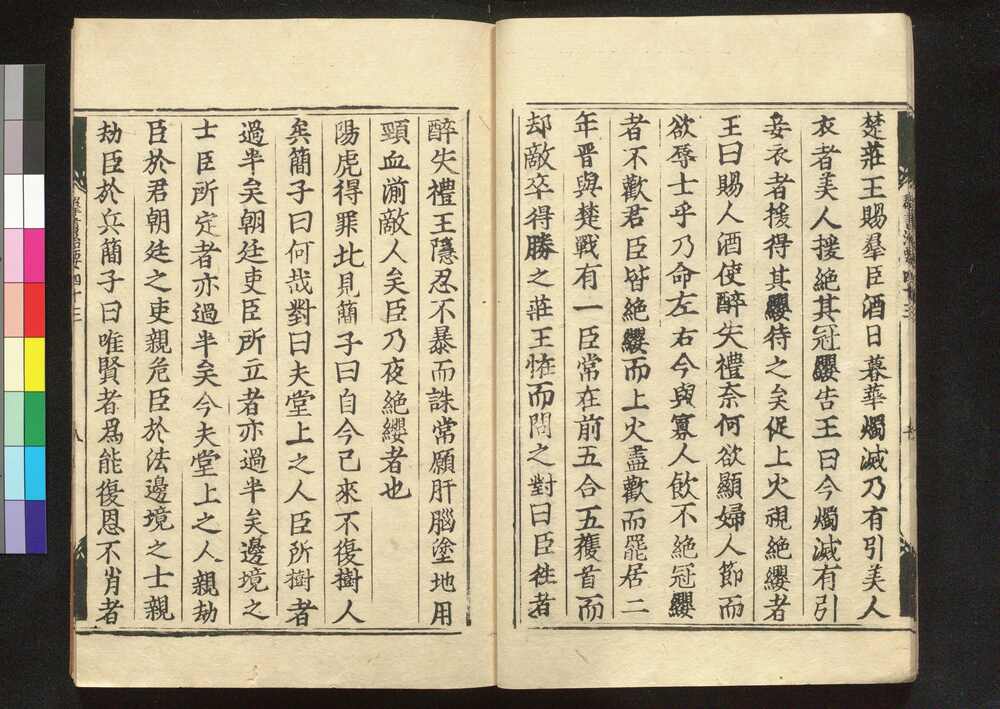 楚莊王賜羣臣酒日暮華燭滅乃有引美人
衣者美人援絶其冠纓告王曰今燭滅有引
妾衣者援得其纓待之矣促上火視絶纓者
王曰賜人酒使醉失禮奈何欲顯婦人節而
欲辱士乎乃命左右今與寡人飲不絶冠纓
者不歡君臣皆絶纓而上火盡歡而罷居二
年晋與楚戰有一臣常在前五合五獲首而
却敵卒得勝之莊王恠而問之對曰臣往者
醉失禮王隱忍不暴而誅常願肝腦塗地用
頸血湔敵人矣臣乃夜絶纓者也
陽虎得罪北見簡子曰自今已來不復樹人
矣簡子曰何哉對曰夫堂上之人臣所樹者
過半矣朝廷吏臣所立者亦過半矣邊境之
士臣所定者亦過半矣今夫堂上之人親劫
臣於君朝廷之吏親危臣於法邊境之士親
劫臣於兵簡子曰唯賢者爲能復恩不肖者
羣書治要四十三
八